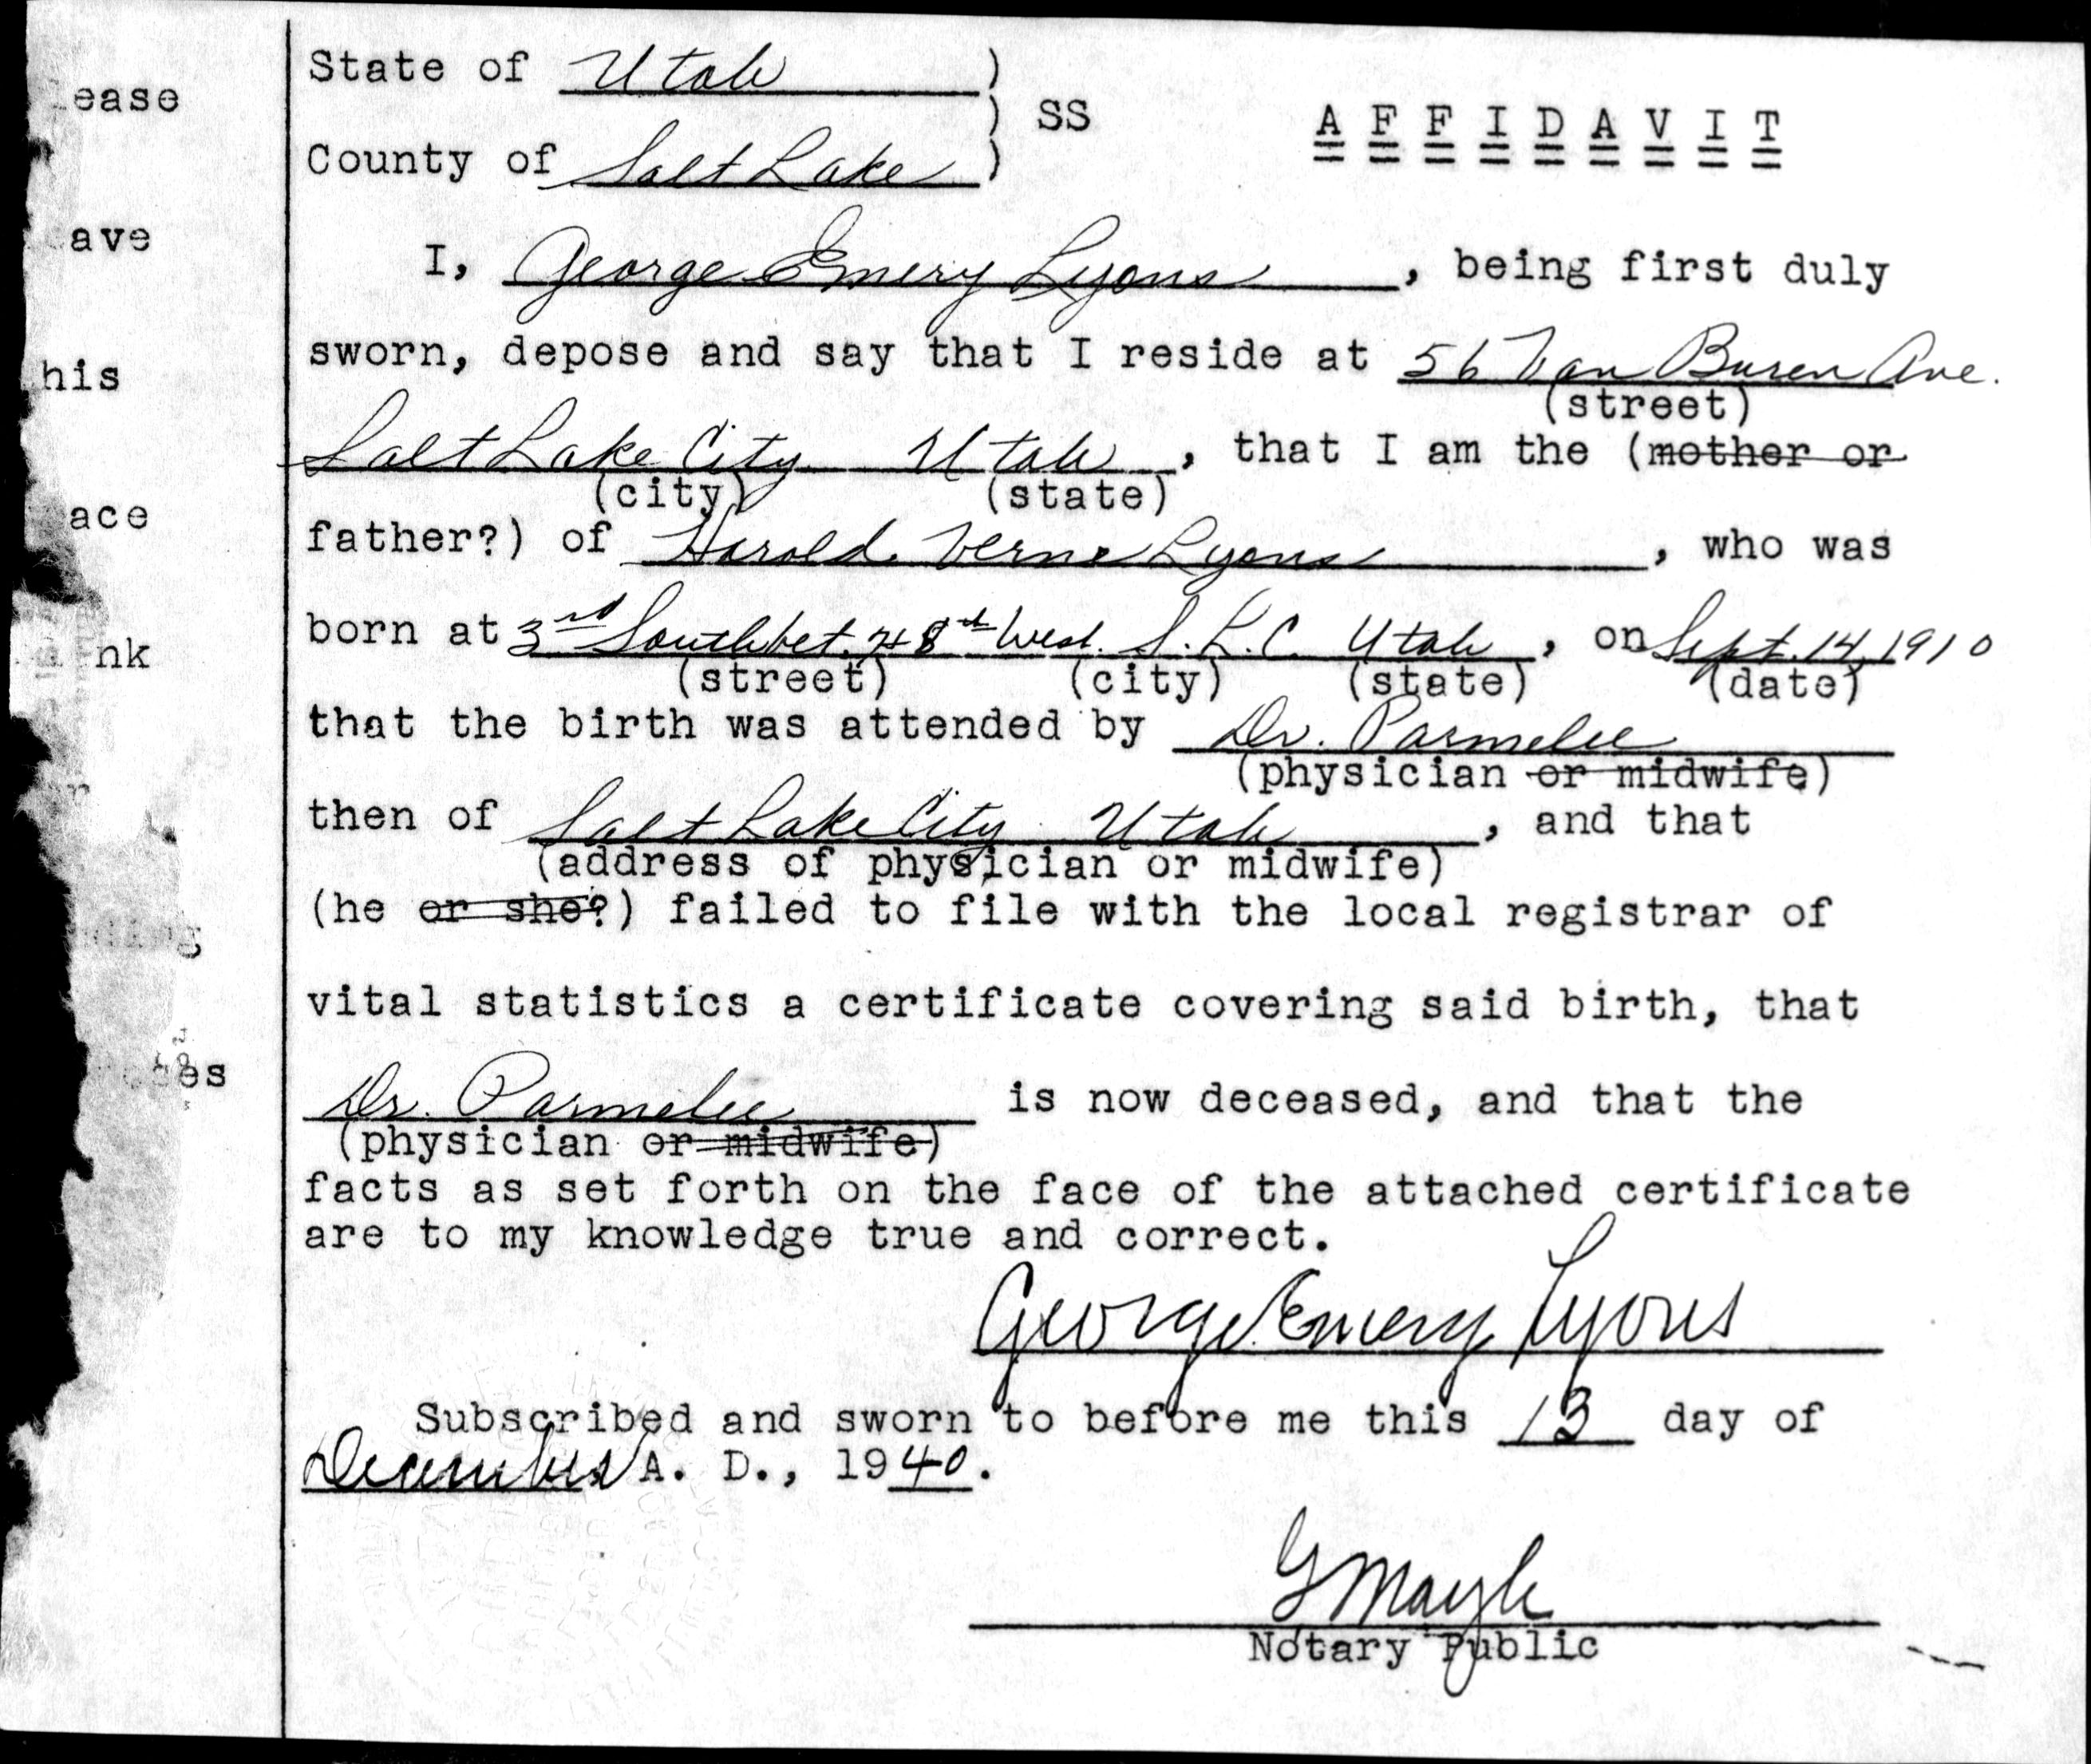 State of Utah )
) SS
County of Salt Lake )
AFFIDAVIT
I, George Emery Lyons, being first duly
sworn, depose and say that I reside at 56 Van Buren Ave.
(street)
Salt Lake City Utah, that I am the (mother or
(city) (state)
father?) of Harold Verne Lyons, who was
born at 3rd South bet. 7 & 8th West. S.L.C. Utah, on Sept. 14, 1910
(street) (city) (state) (date)
that the birth was attended by Dr. Parmelee
(physician or midwife)
then of Salt Lake City Utah, and that
(address of physician or midwife)
(he or she?) failed to file with the local registrar of
vital statistics a certificate covering said birth, that
Dr. Parmelee is now deceased, and that the
(physician or midwife)
facts as set forth on the face of the attached certificate
are to my knowledge true and correct.
George Emery Lyons
Subscribed and sworn to before me this 13 day of
December A. D., 1940.
Notary Public
ease
ave
his
ace
nk